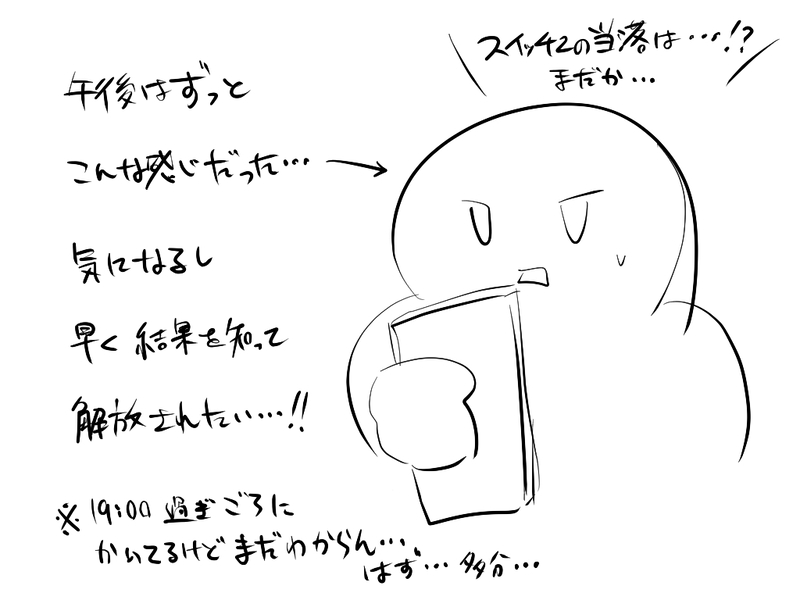 スイッチ2の当落は…!?
まだか…
午後はずっと
こんな感じだった…
気になるし
早く結果を知って
解放されたい…!!
※19:00過ぎごろに
かいてるけどまだわからん…
はず…多分…